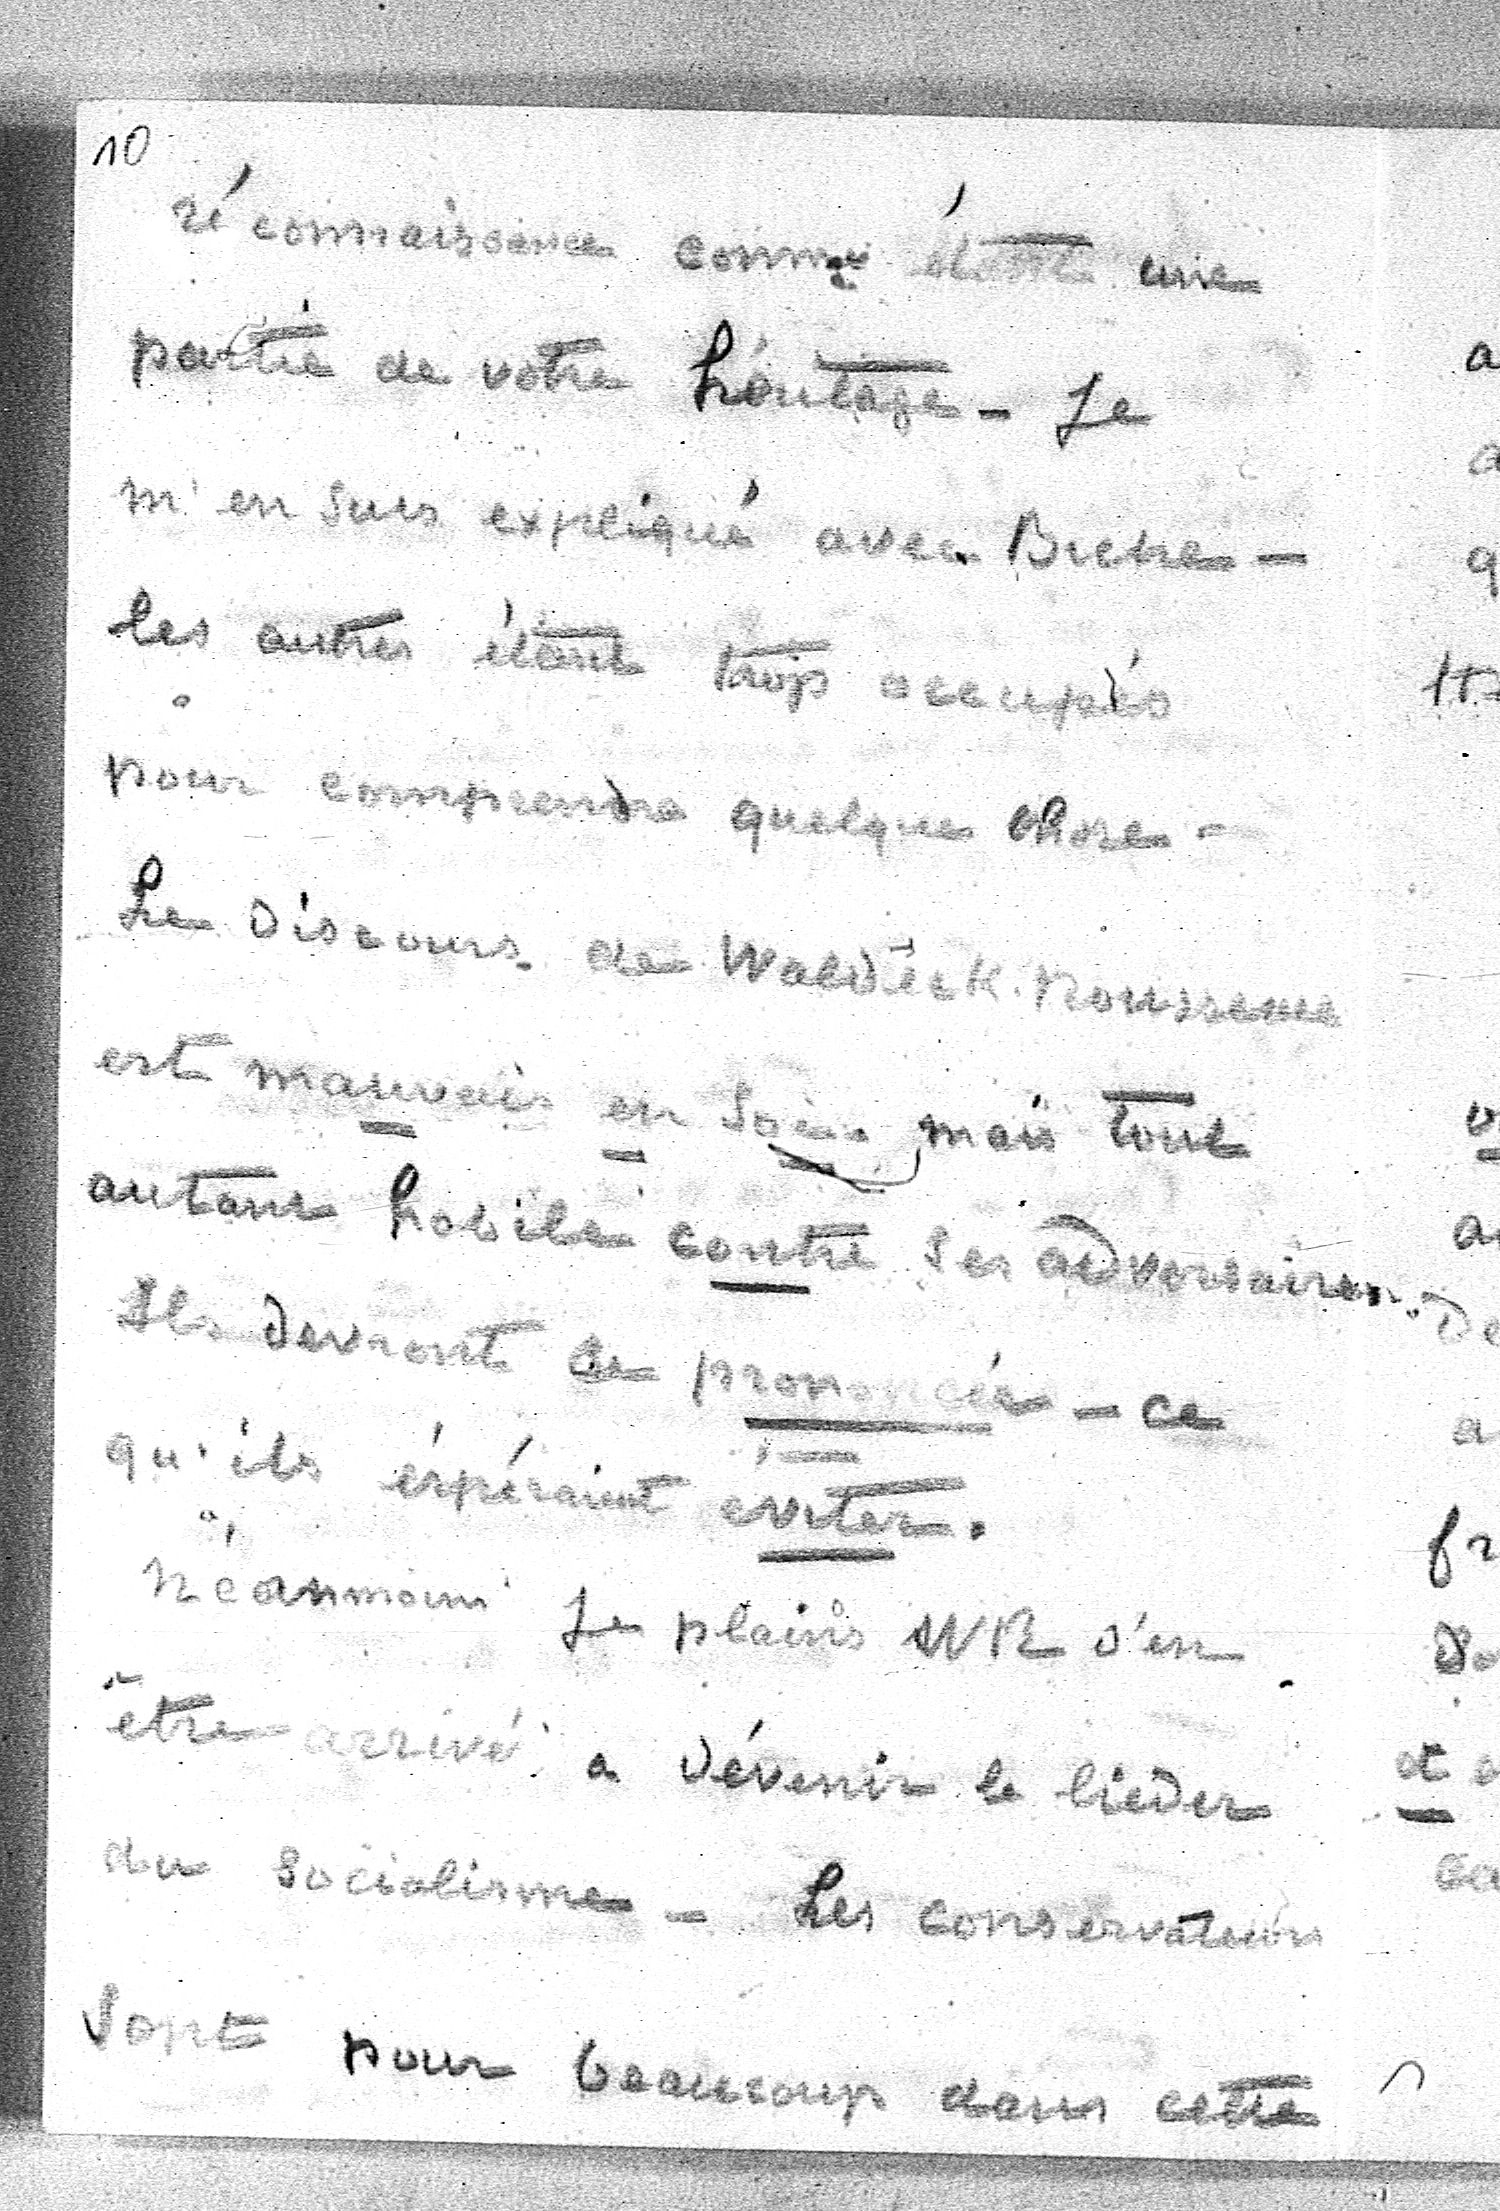 10
réconnaissance comme étant une
partie de votre héritage - Je
m'en suis expliqué avec -
les autres étant trop occupés
pour comprendre quelque chose -
Le Discours de Waldéck. Rousseau
est mauvais en soi mais tout
autant habile contre ses adversaires.
Ils devront se prononcér - ce
qu'ils éspéraient éviter.
Néanmoins Je plains WR d'en
être arrivé a dévenir le liéder
du Socialisme - Les conservateurs
sont pour beaucoup dans cette